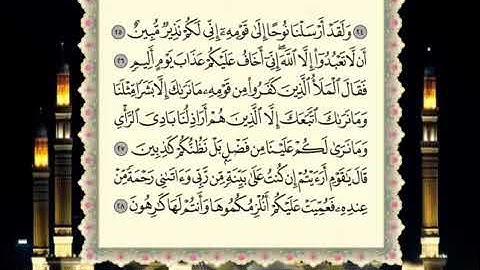 ﴿٢٤﴾ وَلَقَدْ أَرْسَلْنَا نُوحًا إِلَىٰ قَوْمِهِۦٓ إِنِّي لَكُمْ نَذِيرٌ مُّبِينٌ ﴿٢٥﴾
أَن لَّا تَعْبُدُوٓا۟ إِلَّا ٱللَّهَ ۖ إِنِّيٓ أَخَافُ عَلَيْكُمْ عَذَابَ يَوْمٍ أَلِيمٍ ﴿٢٦﴾
فَقَالَ ٱلْمَلَأُ ٱلَّذِينَ كَفَرُوا۟ مِن قَوْمِهِۦ مَا نَرَىٰكَ إِلَّا بَشَرًا مِّثْلَنَا
وَمَا نَرَىٰكَ ٱتَّبَعَكَ إِلَّا ٱلَّذِينَ هُمْ أَرَاذِلُنَا بَادِيَ ٱلرَّأْيِ
وَمَا نَرَىٰ لَكُمْ عَلَيْنَا مِن فَضْلٍۭ بَلْ نَظُنُّكُمْ كَٰذِبِينَ ﴿٢٧﴾
قَالَ يَٰقَوْمِ أَرَءَيْتُمْ إِن كُنتُ عَلَىٰ بَيِّنَةٍ مِّن رَّبِّي وَءَاتَىٰنِي رَحْمَةً مِّنْ
عِندِهِۦ فَعُمِّيَتْ عَلَيْكُمْ أَنُلْزِمُكُمُوهَا وَأَنتُمْ لَهَا كَٰرِهُونَ ﴿٢٨﴾